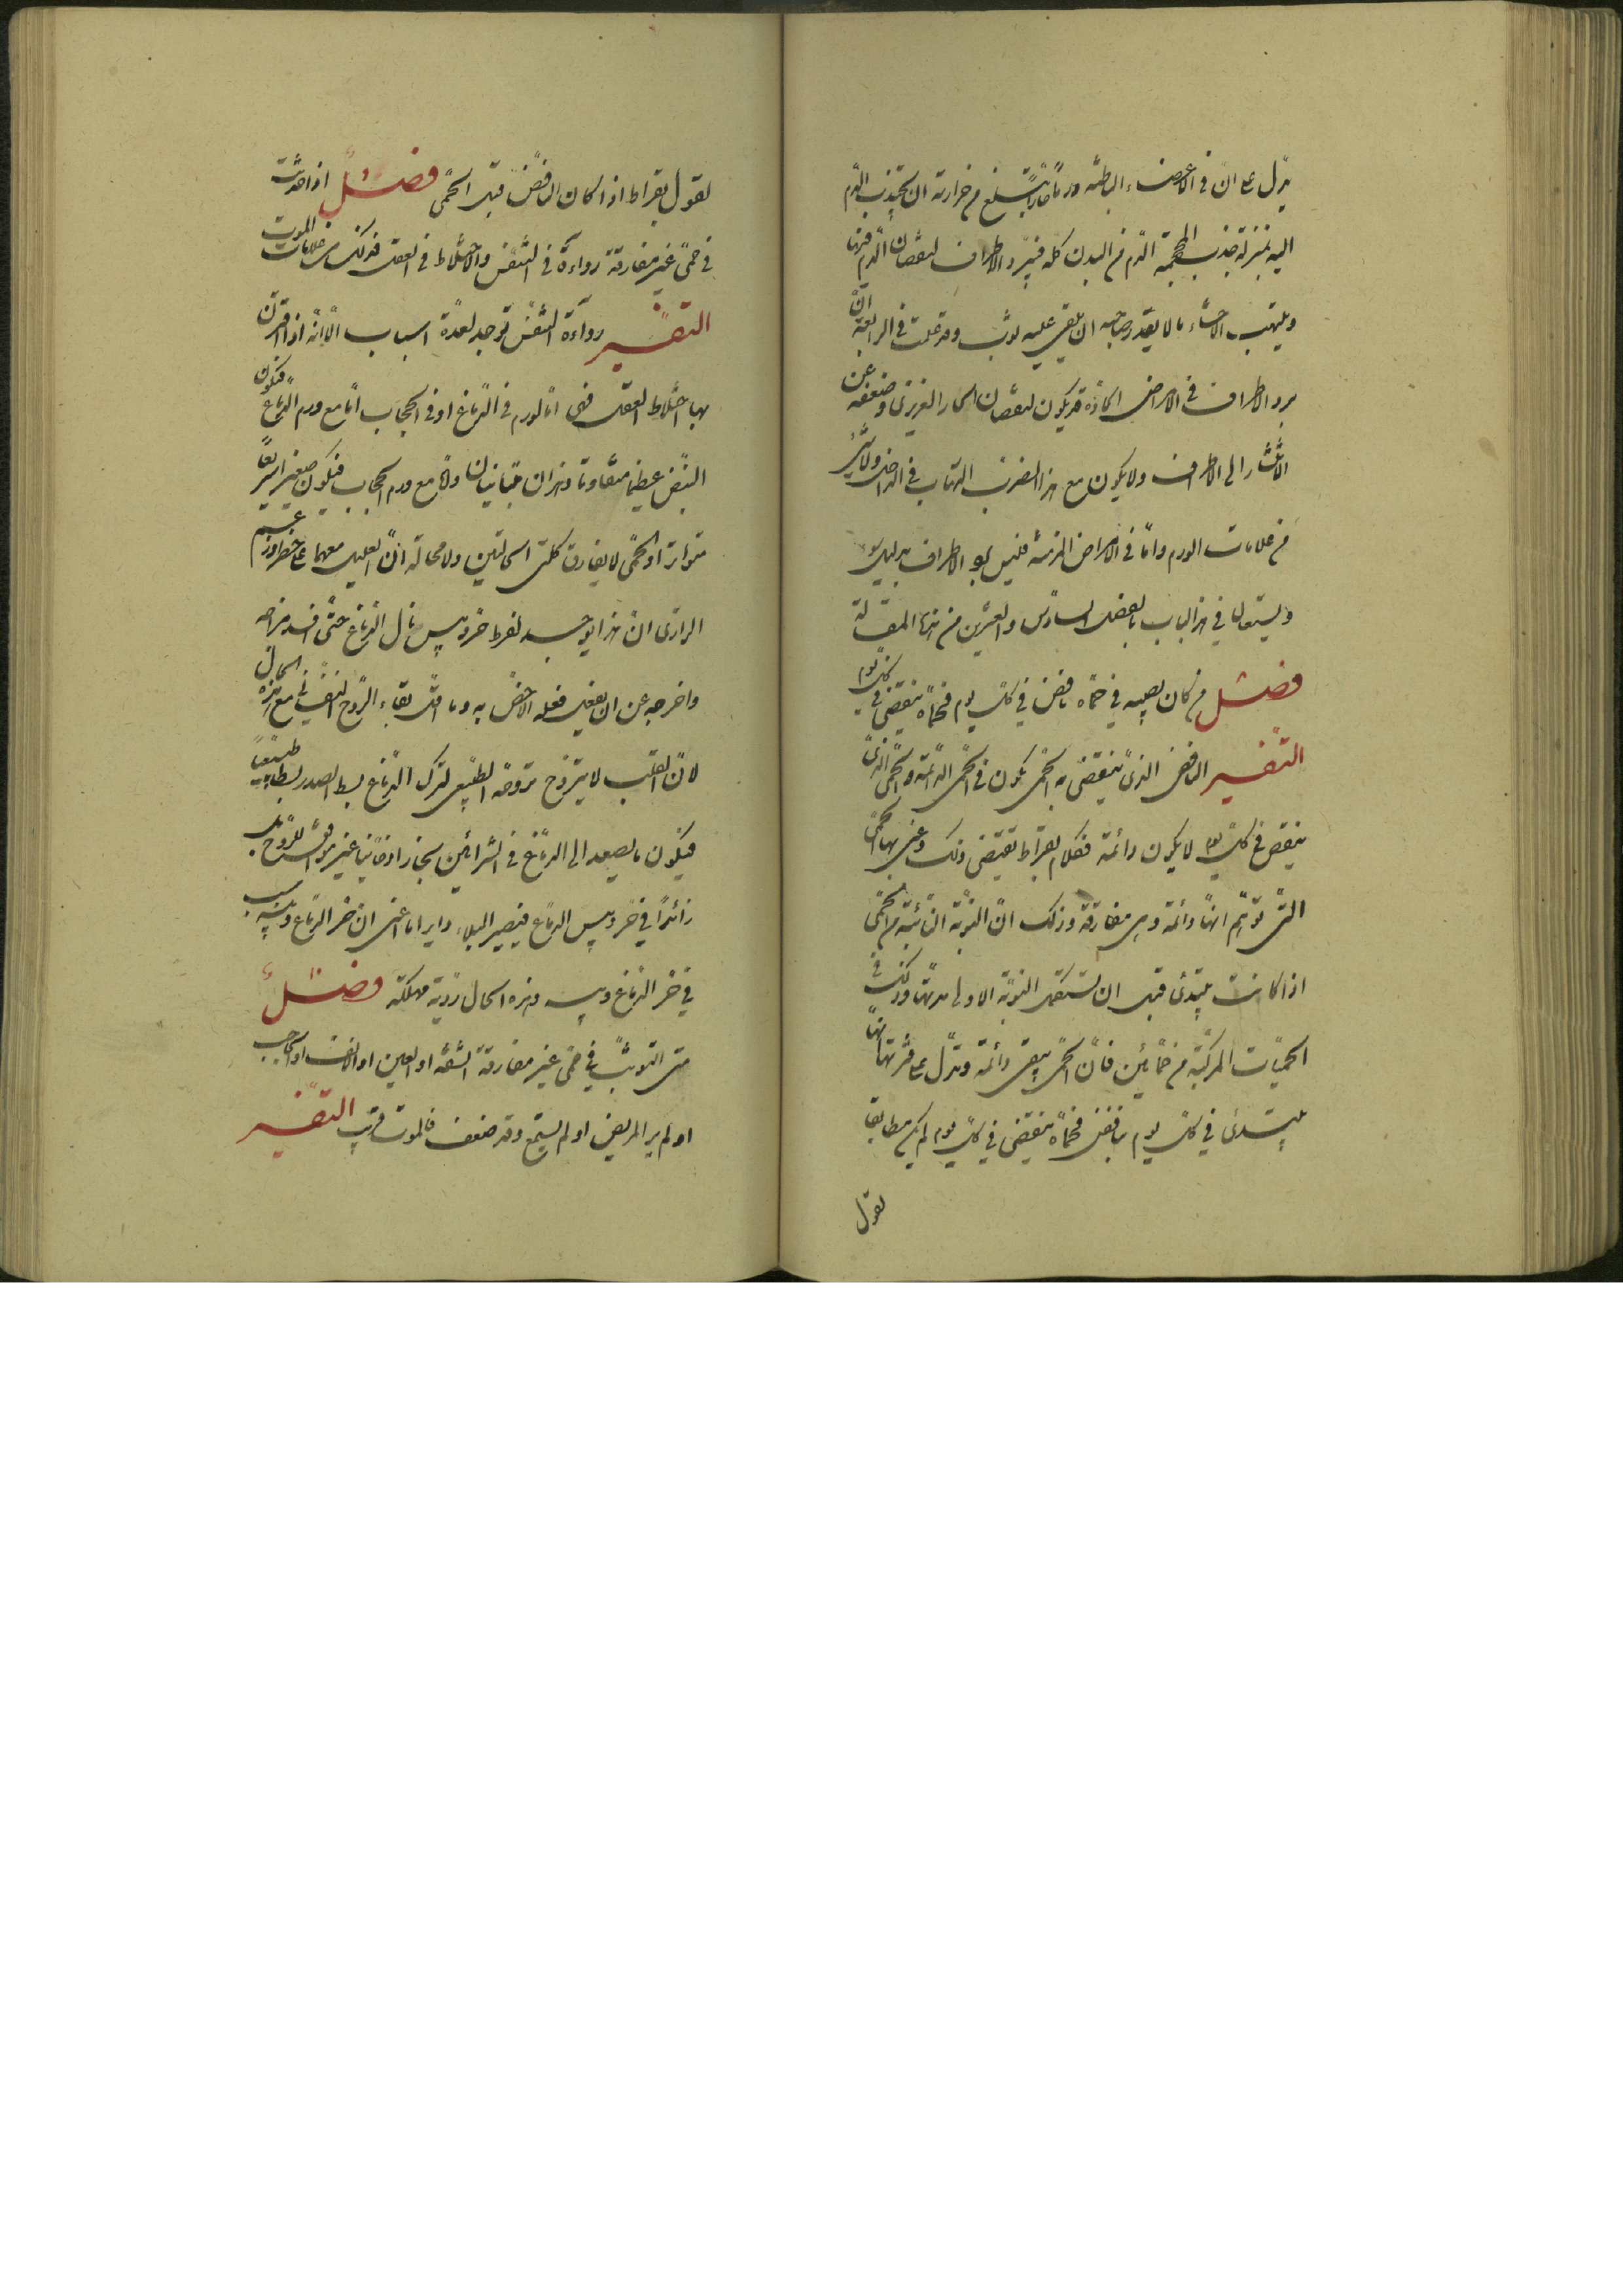 يدل على ان في الاعضاء الباطنة ورما حارا يبلغ من حرارته ان يجتذب الدم
اليه بمنزلة جذب المحجمة الدم من البدن كله فيبرد الاطراف لنقصان الدم فيها
ويلتهب الاحشاء ما لا يقدر صاحبه ان يلقي عليه ثوب وقد علمت في الرابعة ان
برد الاطراف في الامراض الحادة قد يكون لنقصان الحار الغريزي وضعفه عن
الانتشار الى الاطراف ولا يكون مع هذا الضرب التهاب في الداخل ولا شيء
من علامات الورم واما في الامراض المزمنة فليس برد الاطراف بدليل
ويستعان في هذا الباب بالفصل السادس والعشرين من هذه المقالة
فصل من كان يصيبه في حماه نافض في كل يوم فحماه تنقضي في كل يوم
التفسير النافض الذي ينقضي به الحمى يكون في الحمى الدائمة والحمى التي
ينقض في كل يوم لا يكون دائمة فكلام بقراط يقتضي ذلك وعني بها الحمى
التي توهم انها دائمة وهي مفارقة وذلك ان النوبة الثانية من الحمى
اذا كانت يبتدئ قبل ان تستكمل النوبة الاولى مدتها وذلك في
الحميات المركبة من حمائين فان الحمى يبقى دائمة ويدل على فترتها انها
يبتدئ في كل يوم بنافض فحماه تنقضي في كل يوم لم يكن مطابقا
لقول
لقول بقراط اذا كان النافض قبل الحمى فصل اذا حدثت
في حمى غير مفارقة رداءة في التنفس والاختلاط في العقل فذلك من علامات الموت
التفسير رداءة التنفس توجد لعدة اسباب الا انه اذا اقترن
بها اختلاط العقل فهي اما لورم في الدماغ او في الحجاب اما مع ورم الدماغ فيكون
النبض عظيما متفاوتا وهذان متباينان واما مع ورم الحجاب فيكون صغيرا سريعا
متواترا والحمى لا يفارق كلتى الحالتين ولا محالة ان العليل معهما على خطر وزعم
الرازي ان هذا يوجد لفرط حر ويبس نال الدماغ حتى افسد مزاجه
واخرجه عن ان يفعل فعله الاخص به وما اقل بقاء الروح النفساني مع هذه الحال
لان القلب لا يتروح تروحه الطبيعي لترك الدماغ بسط الصدر بسطا طبيعيا
فيكون ما يصعد الى الدماغ في الشرائين بخارا دخانيا غير موافق للروح بل
زائدا في حر ويبس الدماغ فيصير البلاء دايرا اعني ان حر الدماغ ويبسه سبب
في حر الدماغ ويبسه وهذه الحال ردية مهلكة فصل
متى التوت في حمى غير مفارقة الشفة او العين او الانف او الحاجب
او لم ير المريض او لم يسمع وقد ضعف فالموت قريب التفسير